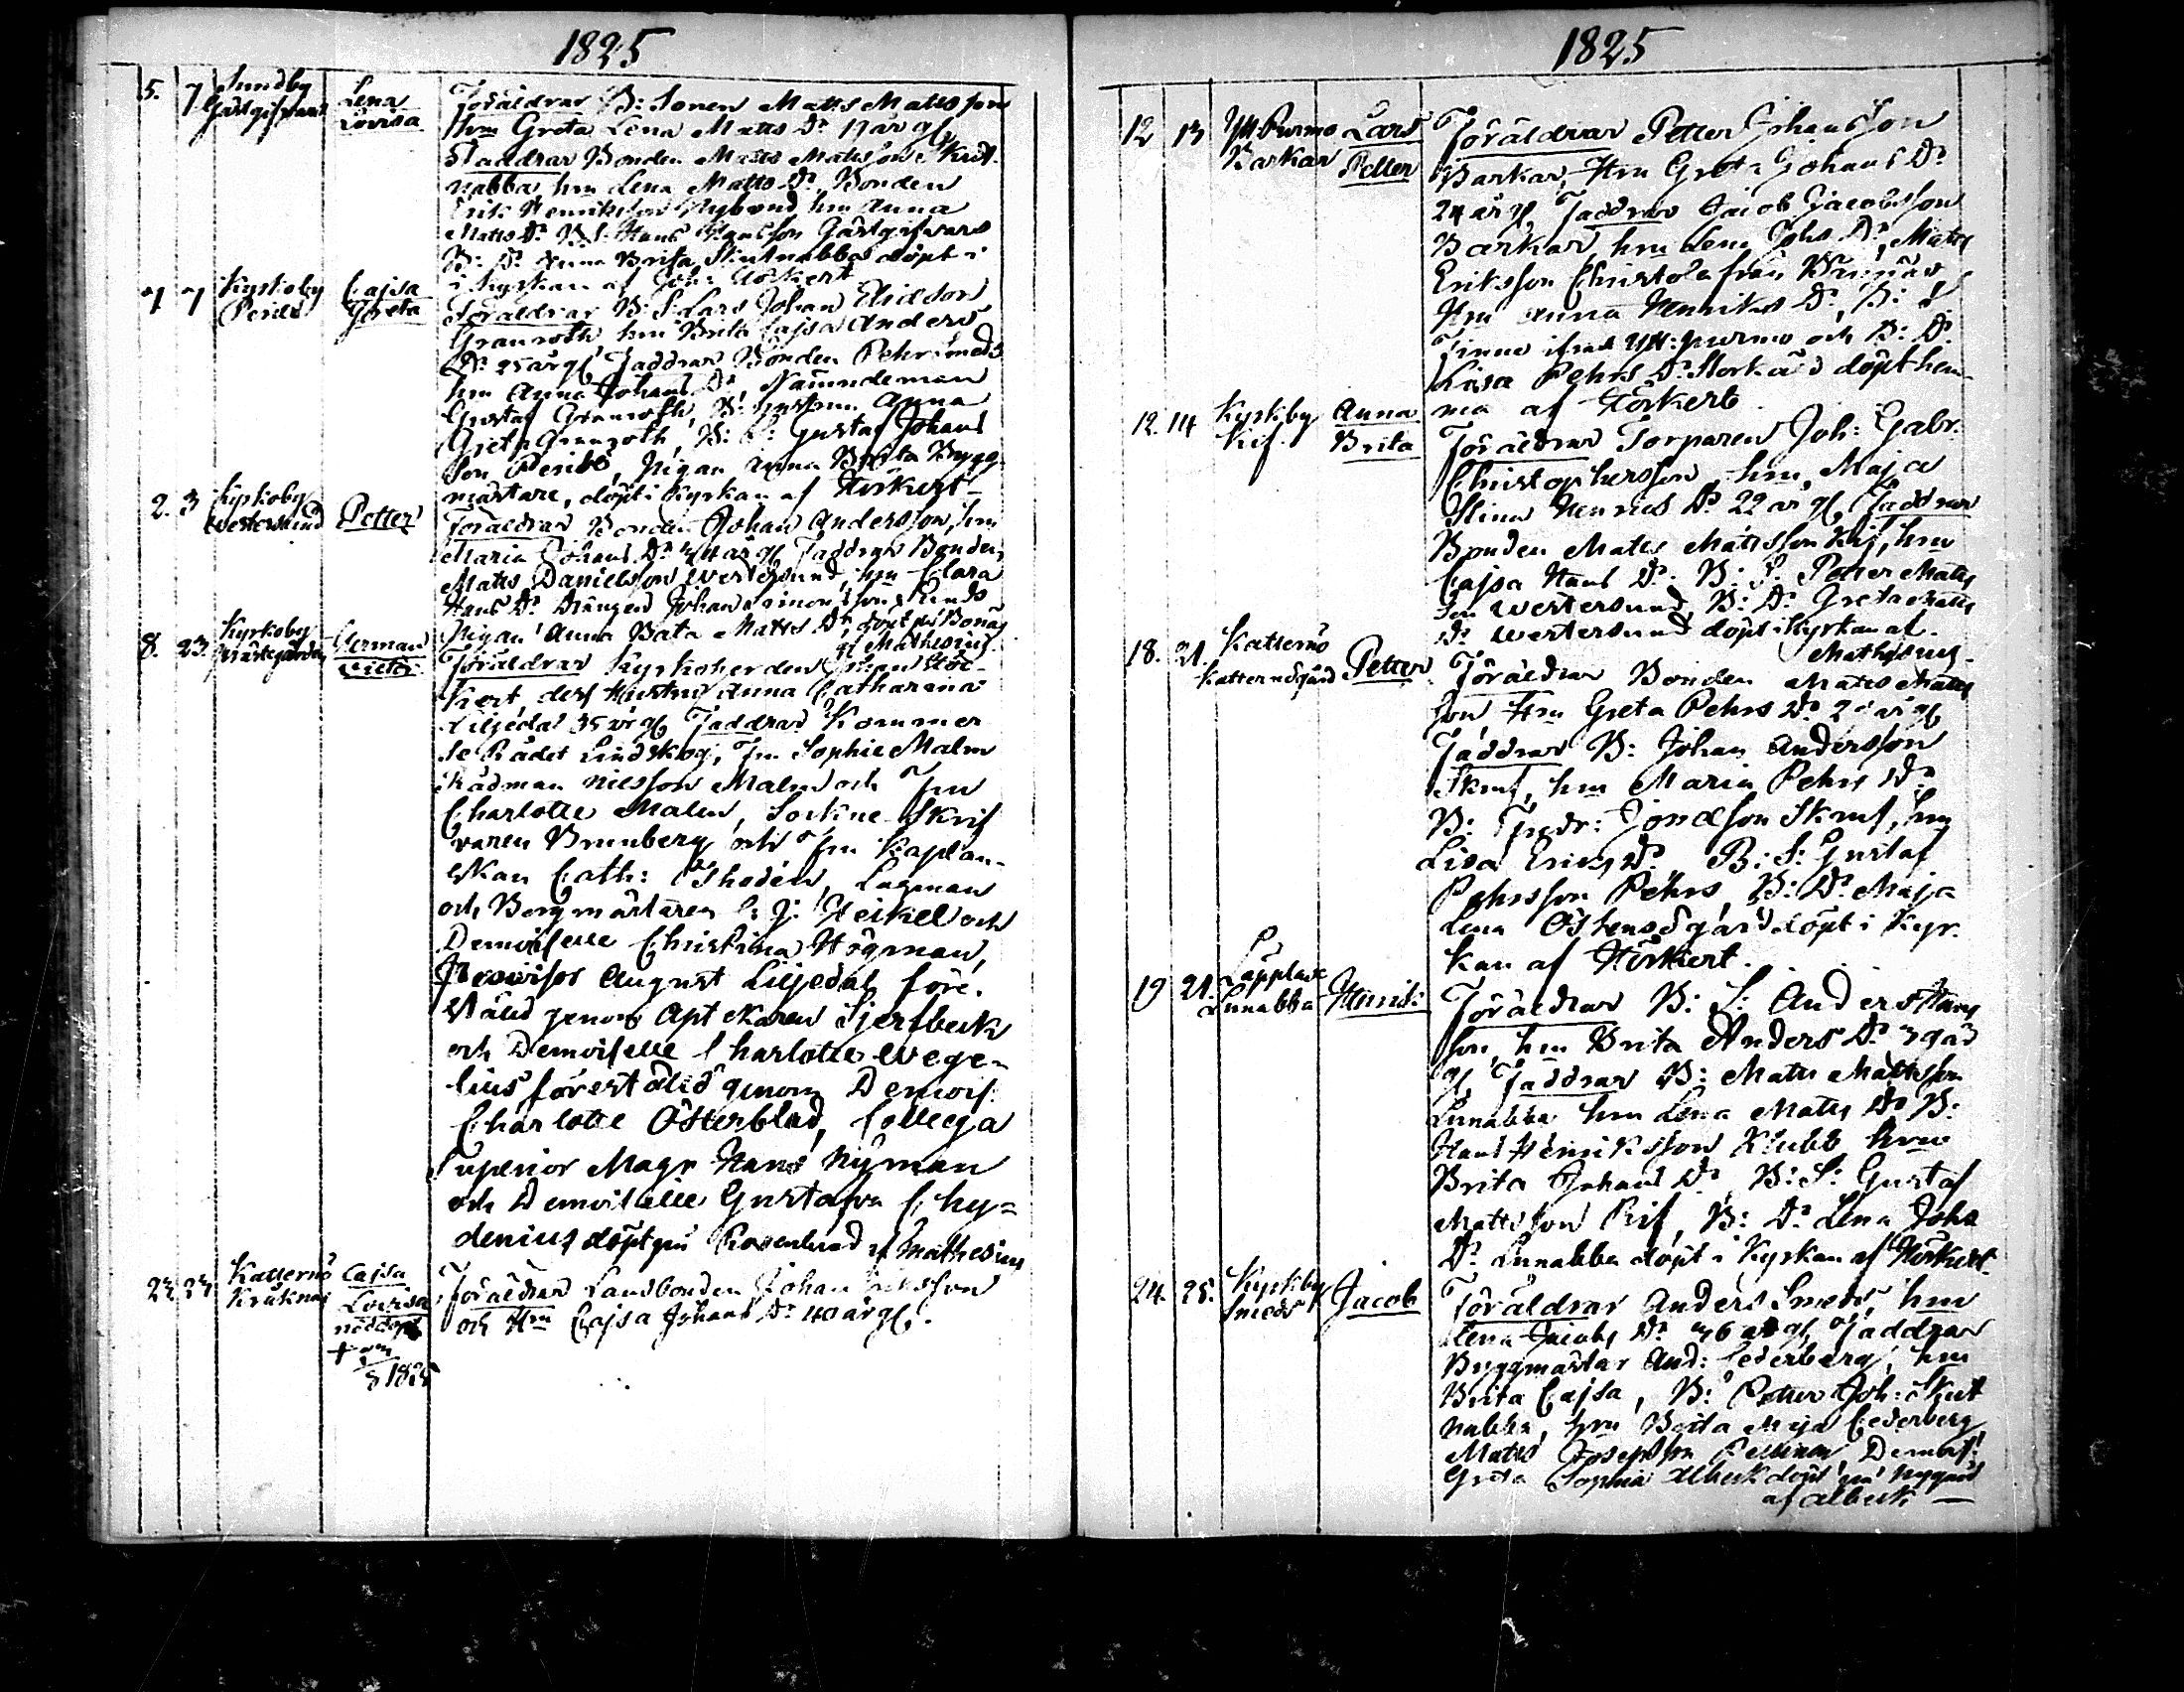 1825
5. 7 Sundby Lena Föräldrar B: Sonen Matts Mattsson
Gästgifvars Lovisa hru Greta Lena Matts Dr 19 år gl,
Faddrar Bonden Matts Mattsson Skut-
nabba hru Lena Matts Dr, Bonden
Erik Henriksson Nybond hru Anna
Matts Dr B: S: Hans Hansson Gästgifvars
B: Dr Anna Brita Slutnabba döpt i
i Kyrkan af Joh: Hörkert
7 7 Kyrkoby Cajsa Föräldrar B: S: Lars Johan Elidson
Peirils Greta Granroth hru Brita Cajsa Anders
Dr 25 år gl, Faddrar Bonden Pehr Smeds
hru Anna Johans Dr, Nämndeman
Gustaf Granroth, B: hustrun Anna
Greta Granroth, B: S: Gustaf Johans
son Peirils, Pigan Anna Brita Bygg-
mästare, döpt i Kyrkan af Hörkert
2. 3 Kyrkoby Petter Föräldrar Bonden Johan Andersson, hru
Westersund Maria Johans Dr 34 år gl Faddrar Bonden
Matts Danielsson Westersund, hru Clara
Hans Dr Drängen Johan Simonsson Lunds
Pigan Anna Beata Matts Dr, döpt på Bonäs
af Mathesius.
8. 23. Kyrkoby Herman Föräldrar Kyrkoherden Johan Hör-
Prästegården Victor kert, dess Hustru Anna Catharina
Liljedal 35 år gl, Faddrar Kommer
se Rådet Lindskog, Fru Sophie Malm
Rådman Nilsson Malm och Fru
Charlotte Malm, Sockne Skrif
varen Brunberg och Fru Kaplan-
skan Cath: Thodén, Lagman
och Borgmästaren C. J. Heikel och
Demoiselle Christina Högman,
Provisor August Liljedal före-
ställd genom Aptekaren Sjerfbeck
och Demoiselle Charlotte Wege-
lius förestäld genom Demois:
Charlotte Österblad, Collega
Superior Magr Hans Nyman
och Demoiselle Gustafva Chy=
denius döpt på Rosenlund af Mathesius
23. 23. Katternö Cajsa Föräldrar Landbonden Johan Eriksson
Kråknäs Lovisa och Hru Cajsa Johans Dr 40 år gl.
nöddöpt
1825
1825
12 13 Ytt Purmo Lars Föräldrar Petter Johansson
Barkar Petter Barkar, Hru Greta Johans Dr
24 år gl Faddrar Jacob Jacobsson
Barkar hru Lena Johs Dr, Matts
Eriksson Christola från Wännäs
Hru Anna Henriks Dr, B: S
Finne ifrån Ytt: purmo och B: Dr
Lisa Pehrs Dr Storkås döpt hem-
ma af Hörkert
12. 14 Kyrkby Anna Föräldrar Torparen Joh: Gabr:
Rif Brita Christophersson, hru, Maja
Stina Henriks Dr 22 år gl, Faddrar
Bonden Matts Mattsson Rif, hru
Cajsa Hans Dr, B: S: Petter Matts
son Westersund, B: Dr Greta Matts
Dr Westersund döpt i Kyrkan af
Mathesius.
18. 21. Katternö Petter Föräldrar Bonden Matts Matts
Katternögård son Hru Greta Pehrs Dr år gl
Faddrar B: Johan Andersson
Skruf, hru Maria Pehrs Dr
B: Fredr: Jonasson Skruf, hru
Lisa Ericks Dr. B: S: Gustaf
Pehrsson Pehrs, B: Dr Maja
Lena Östensögård döpt i Kyr-
kan af Hörkert.
19 21. Lappfors Henrik Föräldrar B: S: Anders Hans
Linnabba son, hru Brita Anders Dr år
gl, Faddrar B: Matts Mattsson
Linnabba hru Lena Matts Dr, B:
Hans Henriksson Klubb hru
Brita Johans Dr B: S: Gustaf
Mattsson Rif, B: Dr Lena Johs
Dr Linnabba döpt i Kyrkan af Hörkert
24. 25. Kyrkby Jacob Föräldrar Anders Smeds, hru
Smeds Lena Jacobs Dr 36 år gl, Faddrar
Byggmästar And: Cederberg, hru
Brita Cajsa, B: Petter Joh: Skut
nabba, hru Brita Maja Cederberg
Matts Josephson Demois:
Greta Sophia Albeck döpt på Nygård
af Albeck